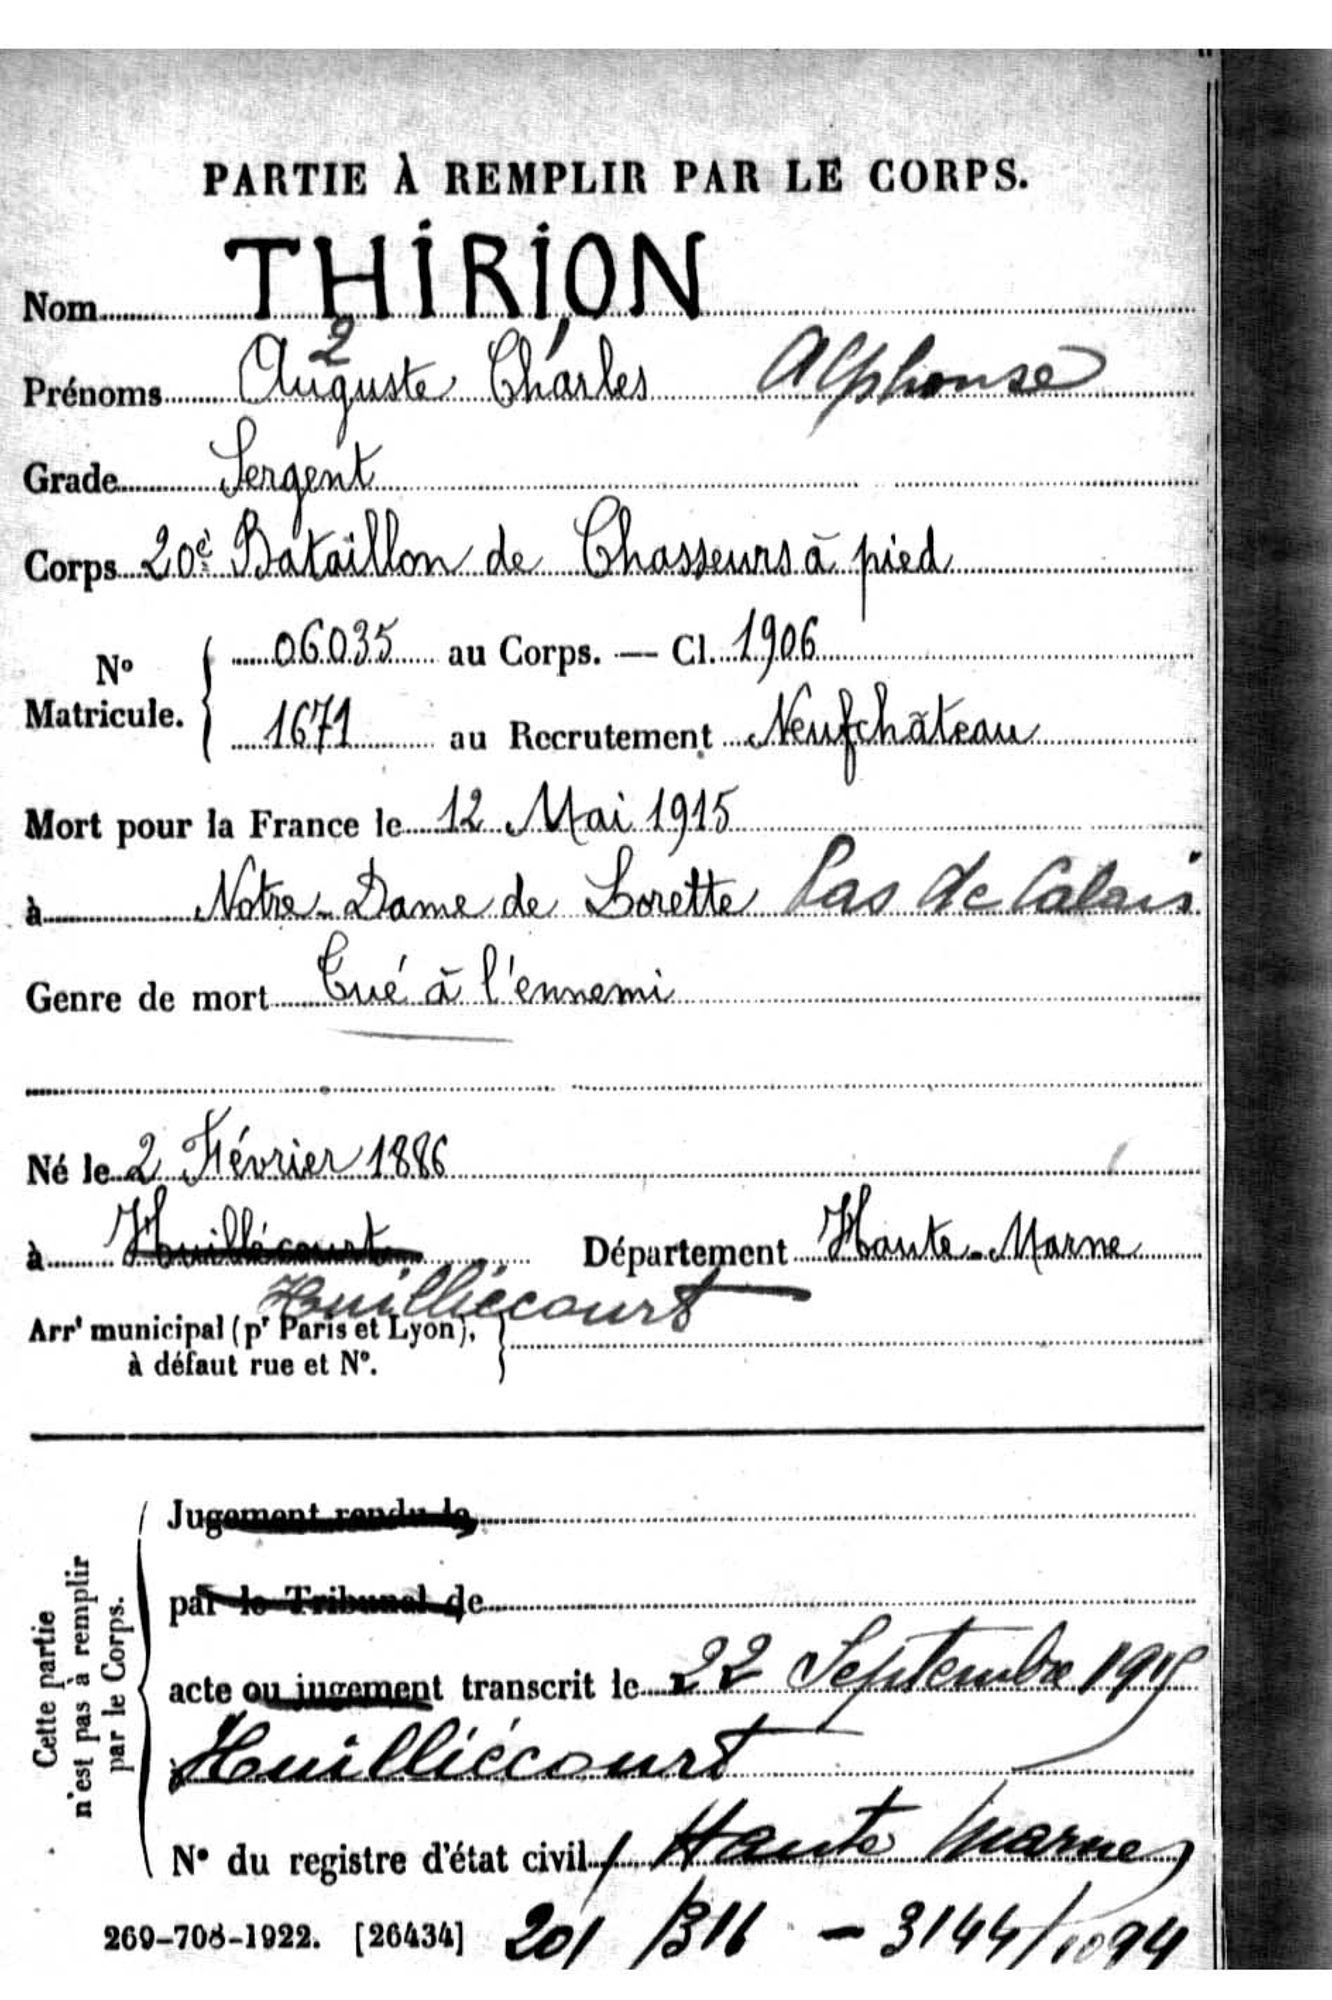 PARTIE À REMPLIR PAR LE CORPS.
Nom THIRION
2
Prénoms Auguste Charles Alphonse
Grade Sergent
Corps 20e Bataillon de Chasseurs à pied
No Matricule. { 06035 au Corps. — Cl. 1906
1671 au Recrutement Neufchâteau
Mort pour la France le 12 Mai 1915
à Notre-Dame de Lorette Pas de Calais
Genre de mort Tué à l'ennemi
Né le 2 Février 1886
à Huillécourt Département Haute-Marne
Huilliécourt
Arrt municipal (pr Paris et Lyon), }
à défaut rue et No.
Cette partie n'est pas à remplir par le Corps.
Jugement rendu le
par le Tribunal de
acte ou jugement transcrit le 22 Septembre 1915
à Huilliécourt
No du registre d'état civil / Haute Marne)
269-708-1922. [26434] 201 /316 - 3144/1094